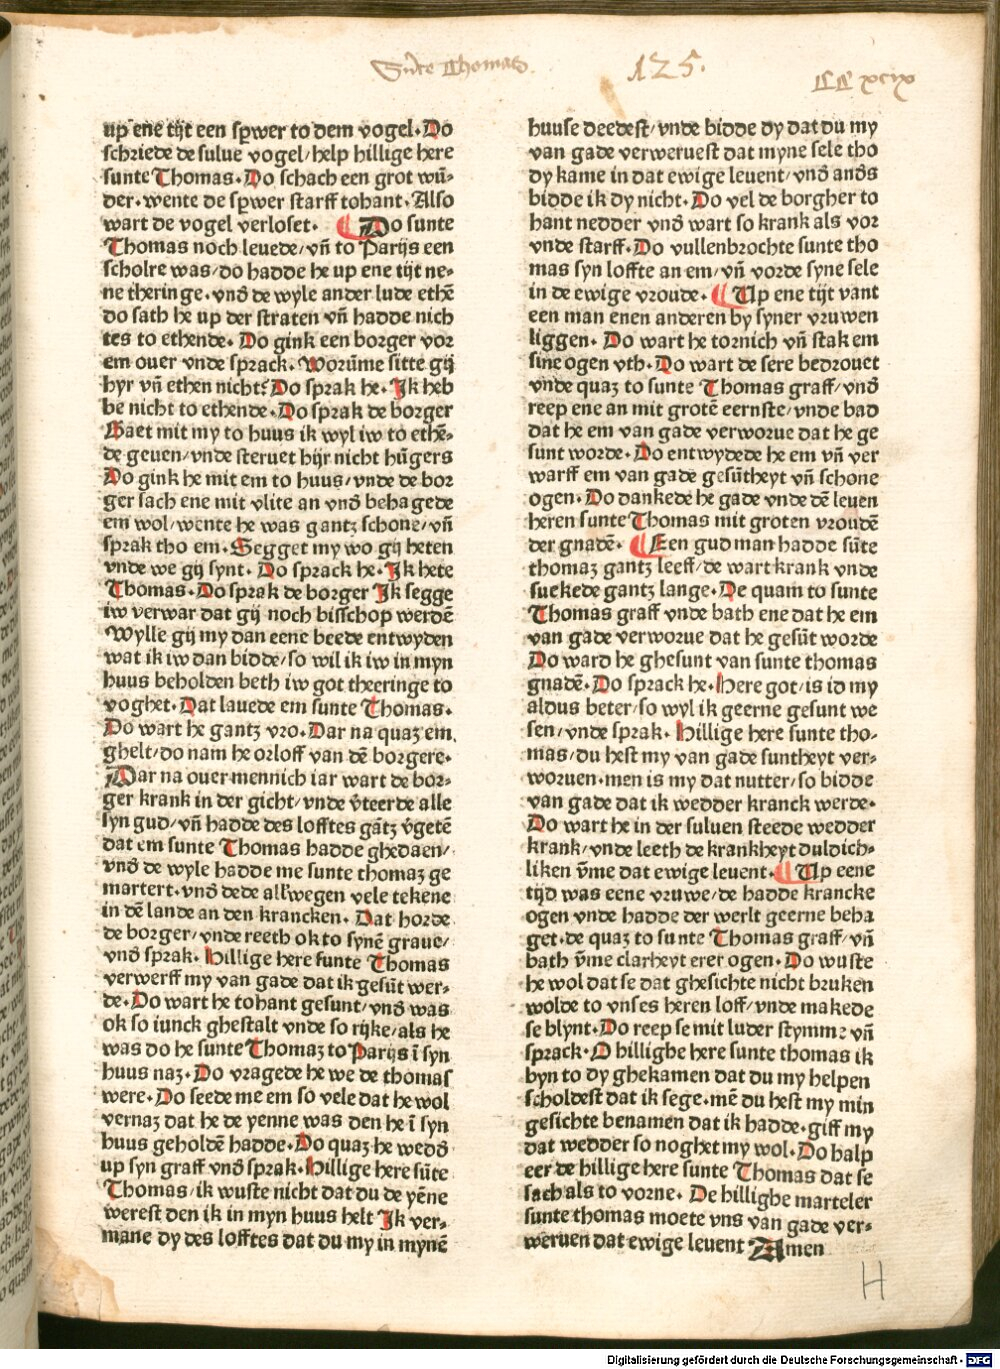 Sũte Thomas.
125.
CC xcix
up ene tijt een sprwer to dem vogel. Do
schriede de sulue vogel/help hillige here
sunte Thomas. Do schach een grot wũ-
der. wente de sprwer starff tohant. Also
wart de vogel verloset. ¶ Do sunte
Thomas noch leuede/vñ to Parijs een
scholre was/do hadde he up ene tijt ne-
ne theringe. vnd̄ de wyle ander lude ethẽ
do sath he up der straten vñ hadde nich
tes to ethende. Do gink een borger vor
em ouer vnde sprack. Worũme sitte gij
hyr vñ ethen nicht? Do sprak he. Jk heb
be nicht to ethende. Do sprak de borger
Gaet mit my to huus ik wyl iw to ethẽ-
de geuen/vnde steruet hijr nicht hũgers
Do gink he mit em to huus/vnde de bor
ger sach ene mit vlite an vnd̄ behagede
em wol/wente he was gantz schone/vñ
sprak tho em. Segget my wo gij heten
vnde we gij synt. Do sprack he. Jk hete
Thomas. Do sprak de borger Jk segge
iw verwar dat gij noch bisschop werdẽ
Wylle gij my dan eene beede entwyden
wat ik iw dan bidde/so wil ik iw in myn
huus beholden beth iw got theeringe to
voghet. Dat lauede em sunte Thomas.
Do wart he gantz vro. Dar na quaz em
ghelt/do nam he orloff van dẽ borgere.
Dar na ouer mennich iar wart de bor-
ger krank in der gicht/vnde v̾teerde alle
syn gud/vñ hadde des lofftes gãtz v̾getẽ
dat em sunte Thomas hadde ghedaen/
vnd̄ de wyle hadde me sunte thomaz ge
martert. vnd̄ dede allwegen vele tekene
in dẽ lande an den krancken. Dat horde
de borger/vnde reeth ok to synẽ graue/
vnd̄ sprak. Hillige here sunte Thomas
verwerff my van gade dat ik gesũt wer-
de. Do wart he tohant gesunt/vnd̄ was
ok so iunck ghestalt vnde so rijke/als he
was do he sunte Thomaz to Parijs ĩ syn
huus naz. Do vragede he we de thomas
were. Do seede me em so vele dat he wol
vernaz dat he de yenne was den he ĩ syn
huus geholdẽ hadde. Do quaz he wedd̄
up syn graff vnd̄ sprak. Hillige here sũte
Thomas/ik wuste nicht dat du de yẽne
werest den ik in myn huus helt Jk ver-
mane dy des lofftes dat du my in mynẽ
huuse deedest/vnde bidde dy dat du my
van gade verweruest dat myne sele tho
dy kame in dat ewige leuent/vnd̄ and̄s
bidde ik dy nicht. Do vel de borgher to
hant nedder vnd̄ wart so krank als vor
vnde starff. Do vullenbrochte sunte tho
mas syn loffte an em/vñ vorde syne sele
in de ewige vroude. ¶ Up ene tijt vant
een man enen anderen by syner vruwen
liggen. Do wart he tornich vñ stak em
sine ogen vth. Do wart de sere bedrouet
vnde quaz to sunte Thomas graff/vnd̄
reep ene an mit grotẽ eernste/vnde bad
dat he em van gade verworue dat he ge
sunt worde. Do entwydede he em vñ ver
warff em van gade gesũtheyt vñ schone
ogen. Do dankede he gade vnde dẽ leuen
heren sunte Thomas mit groten vroudẽ
der gnadẽ. ¶ Een gud man hadde sũte
thomaz gantz leeff/de wart krank vnde
suekede gantz lange. De quam to sunte
Thomas graff vnde bath ene dat he em
van gade verworue dat he gesũt worde
Do ward he ghesunt van sunte thomas
gnadẽ. Do sprack he. Here got/is id my
aldus beter/so wyl ik geerne gesunt we
sen/vnde sprak. Hillige here sunte tho-
mas/du hest my van gade suntheyt ver-
woruen. men is my dat nutter/so bidde
van gade dat ik wedder kranck werde.
Do wart he in der suluen steede wedder
krank/vnde leeth de krankheyt duldich-
liken v̄me dat ewige leuent. ¶ Up eene
tijd was eene vruwe/de hadde krancke
ogen vnde hadde der werlt geerne beha
get. de quaz to sunte Thomas graff/vñ
bath v̄me clarheyt erer ogen. Do wuste
he wol dat se dat ghesichte nicht bruken
wolde to vnses heren loff/vnde makede
se blynt. Do reep se mit luder stymme vñ
sprack. O hillighe here sunte thomas ik
byn to dy ghekamen dat du my helpen
scholdest dat ik sege. mẽ du hest my min
gesichte benamen dat ik hadde. giff my
dat wedder so noghet my wol. Do halp
eer de hillige here sunte Thomas dat se
sach als to vorne. De hillighe marteler
sunte thomas moete vns van gade ver-
weruen dat ewige leuent Amen
H
Digitalisierung gefördert durch die Deutsche Forschungsgemeinschaft - DFG